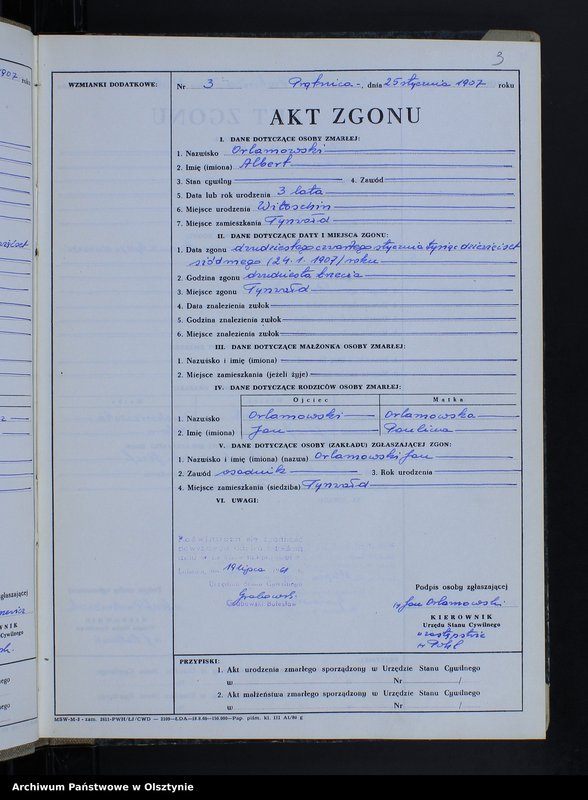 3
1907 roku
WZMIANKI DODATKOWE:
Nr 3 Prątnica -, dnia 25 stycznia 1907 roku
AKT ZGONU
I. DANE DOTYCZĄCE OSOBY ZMARŁEJ:
1. Nazwisko Orlamowski
2. Imię (imiona) Albert
3. Stan cywilny 4. Zawód
5. Data lub rok urodzenia 3 lata
6. Miejsce urodzenia Witoschin
7. Miejsce zamieszkania Tynwałd
II. DANE DOTYCZĄCE DATY I MIEJSCA ZGONU:
1. Data zgonu dwudziestego czwartego stycznia tysiąc dziewięćset
siódmego (24.1.1907) roku
2. Godzina zgonu dwudziesta trzecia
3. Miejsce zgonu Tynwałd
4. Data znalezienia zwłok
5. Godzina znalezienia zwłok
6. Miejsce znalezienia zwłok
III. DANE DOTYCZĄCE MAŁŻONKA OSOBY ZMARŁEJ:
1. Nazwisko i imię (imiona)
2. Miejsce zamieszkania (jeżeli żyje)
IV. DANE DOTYCZĄCE RODZICÓW OSOBY ZMARŁEJ:
Ojciec Matka
1. Nazwisko Orlamowski Orlamowska
2. Imię (imiona) Jan Paulina
V. DANE DOTYCZĄCE OSOBY (ZAKŁADU) ZGŁASZAJĄCEJ ZGON:
1. Nazwisko i imię (imiona) (nazwa) Orlamowski Jan
2. Zawód osadnik 3. Rok urodzenia
4. Miejsce zamieszkania (siedziba) Tynwałd
VI. UWAGI:
Poświadcza się zgodność
19 lipca
Urzędnik Stanu Cywilnego
Grabowski
Grabowski Bolesław
Podpis osoby zgłaszającej
Jan Orlamowski
KIEROWNIK
Urzędu Stanu Cywilnego
w zastępstwie
PRZYPISKI:
1. Akt urodzenia zmarłego sporządzony w Urzędzie Stanu Cywilnego
w Nr /
2. Akt małżeństwa zmarłego sporządzony w Urzędzie Stanu Cywilnego
w Nr /
Archiwum Państwowe w Olsztynie